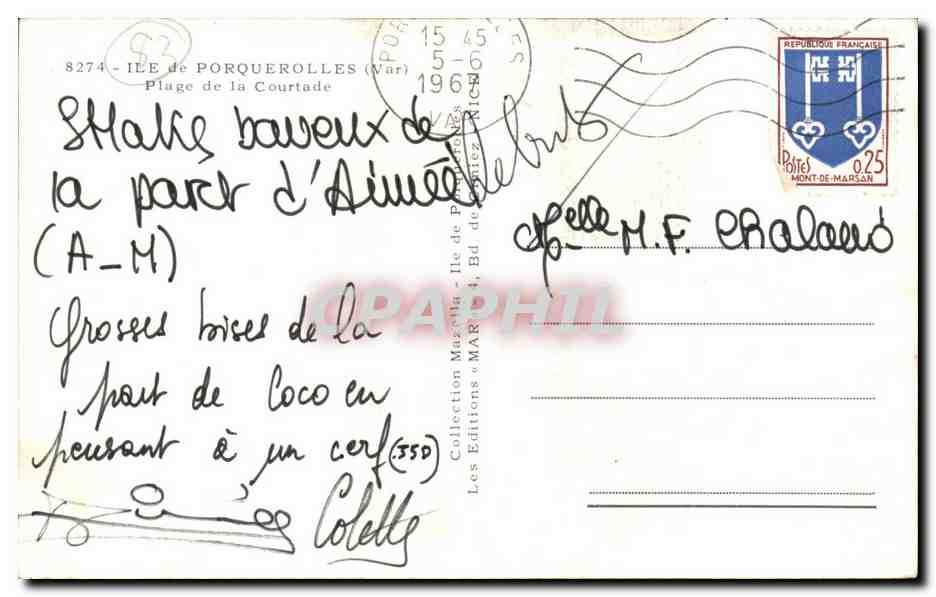 83
8274 - ILE de PORQUEROLLES (Var)
Plage de la Courtade
15 45
5-6
1967
VAR
REPUBLIQUE FRANÇAISE
POSTES
0.25
MONT-DE-MARSAN
baveux de
la part d'Aimée
(A-M)
Grosses bises de la
part de Coco en
pensant à un cerf (JSD)
Colette
Melle M.F. Chaland
Collection Mazella - Ile de Porquerolles
Les Editions « MAR » 4, Bd de Cimiez, NICE
CPAPHIL